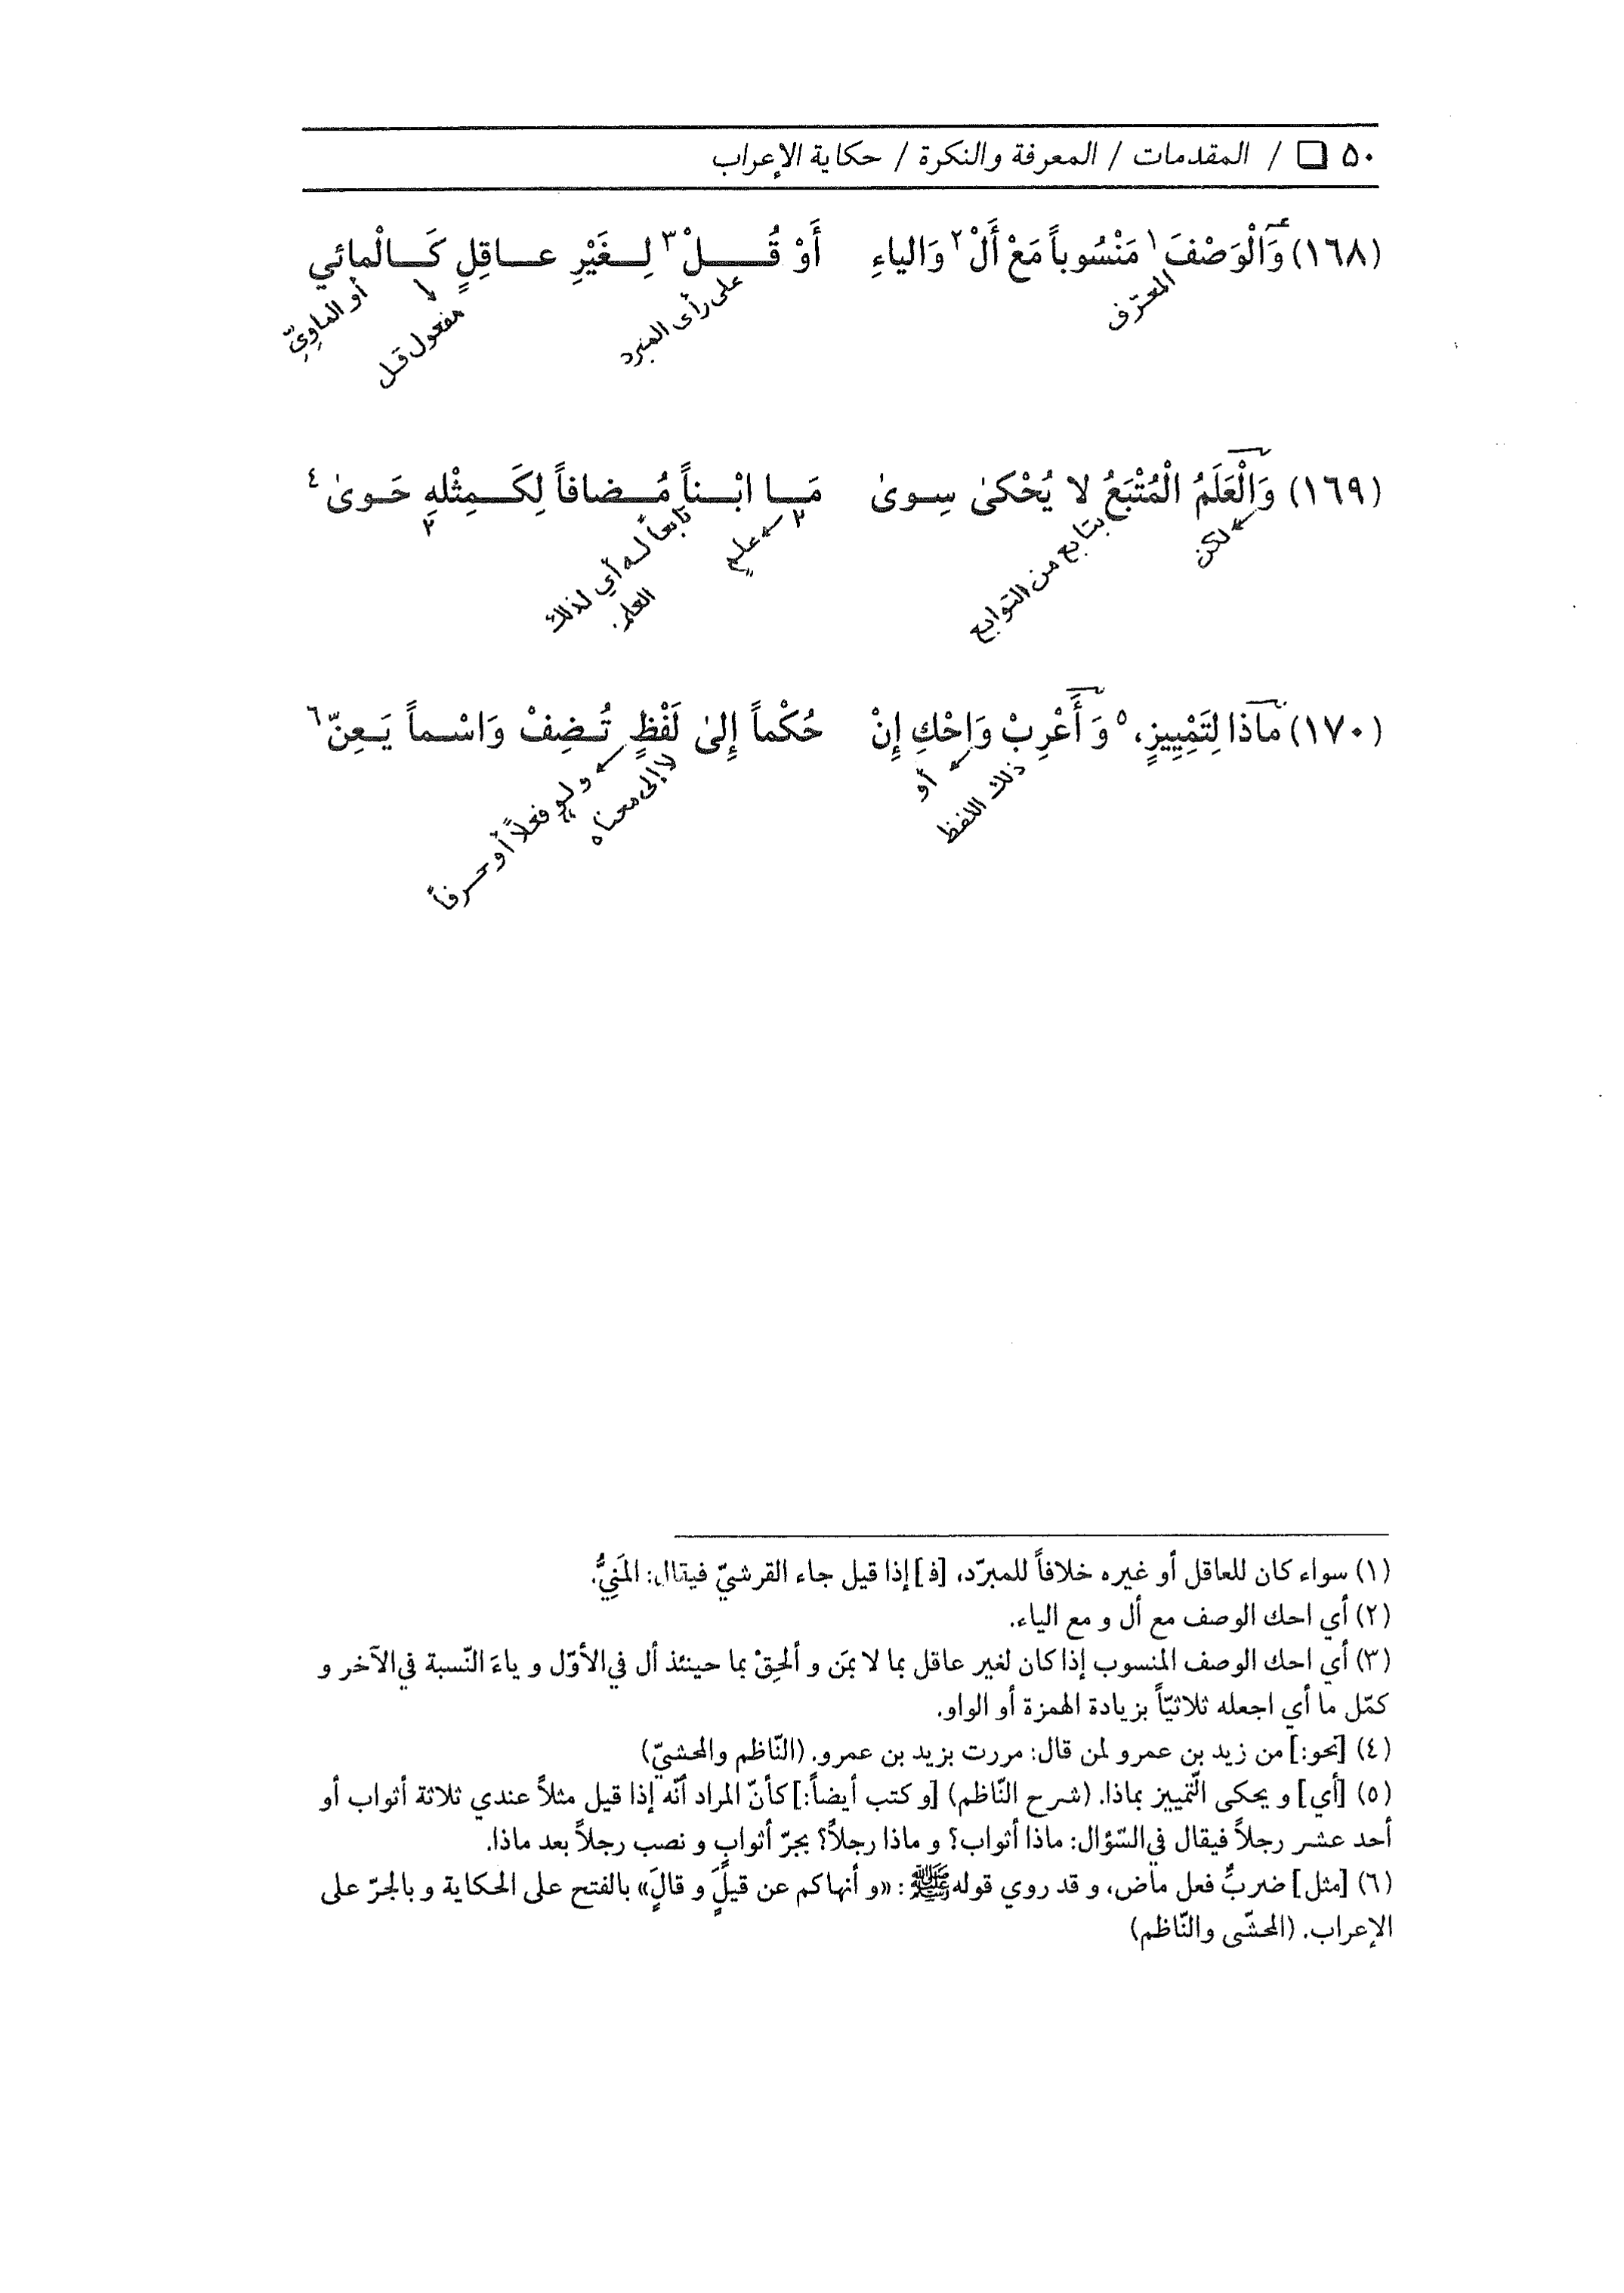 ٥٠ ❏ / المقدمات / المعرفة والنكرة / حكاية الإعراب
(١٦٨) وَالْوَصْفَ١ مَنْسُوباً مَعْ أَلْ٢ وَالياءِ أَوْ قُـلْ٣ لِـغَيْرِ عـاقِلٍ كَـالْمائي
المعرّف
على رأى المبرد
مفعول قل
أو الماوِيّ
(١٦٩) وَالْعَلَمُ الْمُتْبَعُ لا يُحْكىٰ سِـوىٰ مَـا ابْـناً مُـضافاً لِكَـمِثْلهِ حَـوىٰ٤
لكن
بتابع من التوابع
٢ علمٍ
تابعاً له أي لذلك
العلم.
٢
(١٧٠) ماذا لِتَمْيِيزٍ،٥ وَ أَعْرِبْ وَاحْكِ إِنْ حُكْماً إِلىٰ لَفْظٍ تُـضِفْ وَاسْـماً يَـعِنّ٦
أو
ذلك اللفظ
لا إلى معناه
ولو فعلاً أو حرفاً
(١) سواء كان للعاقل أو غيره خلافاً للمبرّد، [فـ] إذا قيل جاء القرشيّ فيقال: المَنِيُّ.
(٢) أي احك الوصف مع أل و مع الياء.
(٣) أي احك الوصف المنسوب إذا كان لغير عاقل بما لا بمَن و ألحِقْ بما حينئذ أل في الأوّل و ياءَ النّسبة في الآخر و
كمّل ما أي اجعله ثلاثيّاً بزيادة الهمزة أو الواو.
(٤) [نحو:] من زيد بن عمرو لمن قال: مررت بزيد بن عمرو. (النّاظم والمحشيّ)
(٥) [أي] و يحكى التّمييز بماذا. (شرح النّاظم) [و كتب أيضاً:] كأنّ المراد أنّه إذا قيل مثلاً عندي ثلاثة أثواب أو
أحد عشر رجلاً فيقال في السّؤال: ماذا أثواب؟ و ماذا رجلاً؟ بجرّ أثوابٍ و نصب رجلاً بعد ماذا.
(٦) [مثل] ضربٌ فعل ماض، و قد روي قوله ﷺ: «و أنهاكم عن قيلَ و قالَ» بالفتح على الحكاية و بالجرّ على
الإعراب. (المحشّى والنّاظم)